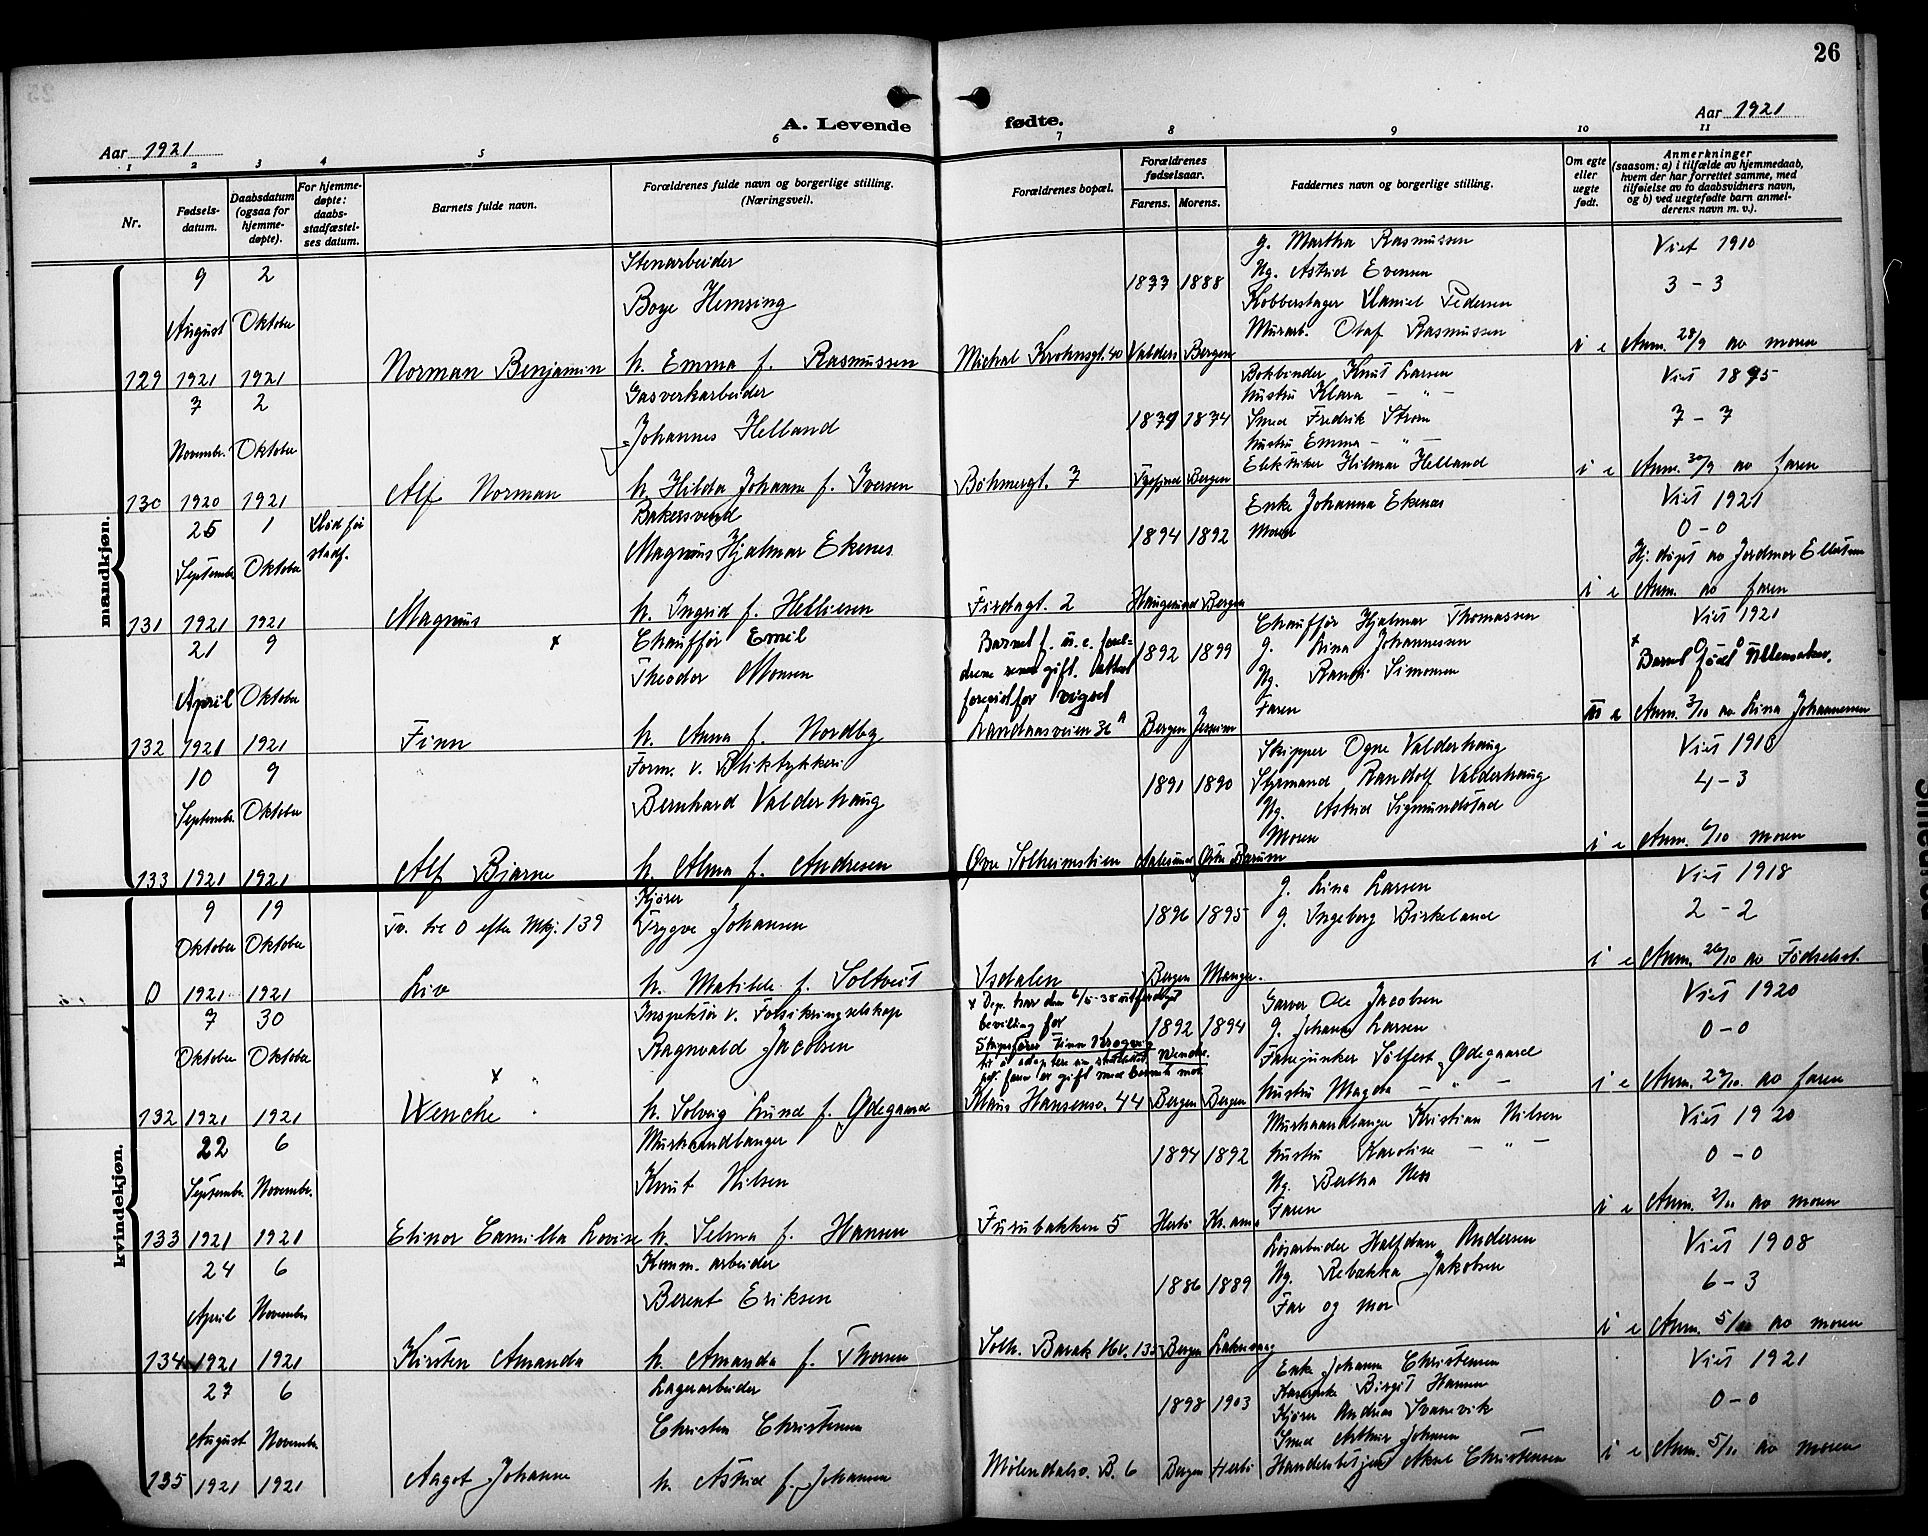 26
A. Levende fødte.
Aar 1921
Aar 1921
1 2 3 4 5 6 7 8 9 10 11
Nr.
Fødsels-
datum.
Daabsdatum
(ogsaa for
hjemme-
døpte).
For hjemme-
døpte:
daabs-
stadfæstel-
ses datum.
Barnets fulde navn.
Forældrenes fulde navn og borgerlige stilling.
(Næringsvei).
Forældrenes bopæl.
Forældrenes
fødselsaar.
Farens. Morens.
Faddernes navn og borgerlige stilling.
Om egte
eller
uegte
født.
Anmerkninger
(saasom: a) i tilfælde av hjemmedaab,
hvem der har forrettet samme, med
tilføielse av to daabsvidners navn,
og b) ved uegtefødte barn anmel-
derens navn m. v.).
mandkjøn.
129
9 August 1921
2 Oktober 1921
Norman Benjamin
Stenarbeider
Boye Hemsing
h. Emma f. Rasmussen
Michal Krohnsgt. 40
1888
Valders Bergen
g. Martha Rasmussen
Ug. Astrid Evensen
Kobberslager Daniel Pedersen
Murarb. Olaf Rasmussen
i e
Viet 1910
3 - 3
Anm. 28/9 av moren
130
7 Novembr. 1920
2 Oktober 1921
Alf Norman
Gasverkarbeider
Johannes Helland
h. Hilda Johanne f. Iversen
Böhmergt. 7
1874
Bergen
Bokbinder Knut Larsen
Hustru Klara - " -
Smed Fredrik Strøm
Hustru Emma - " -
Elektriker Hilmar Helland
i e
Viet 1895
7 - 7
Anm. 30/9 av faren
131
25 September 1921
1 Oktober 1921
Død før
stadf.
Magnus
Bakersvend
Magnus Hjalmar Ekenes
h. Ingrid f. Helliesen
Firdagt. 2
1894 1892
Haugesund Bergen
Enke Johanna Ekenes
Moren
i e
Viet 1921
0 - 0
Hj. døpt av Jordmor Ellertsen
Anm. av faren
132
21 April 1921
9 Oktober 1921
Finn
x
Chauffør Emil
Theodor Monsen
h. Anna f. Nordby
Barnet f. u. e. forel-
drene senere gift. Attest
forevist for vigsel
Landaasveien 36 A
1892 1899
Bergen Jessheim
Chauffør Hjalmar Thomassen
g. Lina Johannesen
Ug. Randi Simonsen
Faren
u e
Viet 1921
x
Barnet født Ullensaker.
Anm. 3/10 av Lina Johannesen
133
10 Septembr. 1921
9 Oktober 1921
Alf Bjarne
Form. v. Bliktrykkeri
Bernhard Valderhaug
h. Alma f. Andresen
Øvre Solheimstien
1891 1890
Aalesund Østre Bærum
Skipper Ogne Valderhaug
Styrmand Randolf Valderhaug
Ug. Astrid Sigmundstad
Moren
i e
Viet 1910
4 - 3
Anm. 6/10 moren
kvindekjøn.
0
9 Oktober 1921
19 Oktober 1921
Tv. til 0 efter Mkj. 139
Liv
Kjører
Trygve Johansen
h. Matilde f. Soltveit
Isdalen
1896 1895
Bergen Manger.
g. Lina Larsen
g. Ingeborg Birkeland
i e
Viet 1918
2 - 2
Anm. 26/10 av Fødselsst.
132
7 Oktober 1921
30 Oktober 1921
x
Wenche
Inspektør v. Forsikringselskap
Ragnvald Jacobsen
h. Solveig Lund f. Ødegaard
x Dep. har den 6/5-35 utferdiget
bevilling for
Skipsfører Finn Krogerig
til å adoptere sin stedatter Wenche.
Adf. faren er gift med barnets mor
Klaus Hansensv. 44
1892 1894
Bergen Bergen
Garver Ole Jacobsen
g. Johanne Larsen
Fanejunker Sølfest Ødegaard
Hustru Magda - " -
i e
Viet 1920
0 - 0
Anm. 27/10 av faren
133
22 Septembr. 1921
6 Novembr. 1921
Elinor Camilla Lovise
Murhaandlanger
Knut Nilsen
h. Selma f. Hansen
Furubakken 5
1894 1892
Herlø Kr.ania
Murhaandlanger Kristian Nilsen
Hustru Karoline - " -
Ug. Bertha Ness
Faren
i e
Viet 1920
0 - 0
Anm. 2/11 av moren
134
24 April 1921
6 November 1921
Kirsten Amanda
Komm. arbeider
Berent Eriksen
h. Amanda f. Thorsen
Solh. Barak Hv. 135
1886 1889
Bergen Laksevaag
Løsarbeider Halfdan Andersen
Ug. Rebekka Jakobsen
Far og mor
i e
Viet 1908
6 - 3
Anm. 5/11 av moren
135
27 August 1921
6 November 1921
Aagot Johanne
Lagerarbeider
Christen Christensen
h. Astrid f. Johansen
Mølendalsv. B. 6
1898 1903
Bergen Herlø
Enke Johanne Christensen
Birgit Hansen
Kjører Andreas Svanevik
Smed Arthur Johansen
Handelsbetjent Aksel Christensen
i e
Viet 1921
0 - 0
Anm. 5/11 av moren